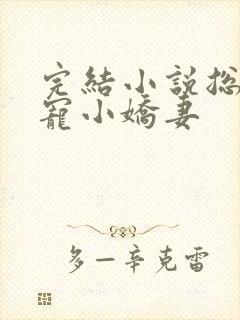 完結小說總
寵小嬌妻
多一辛克雷